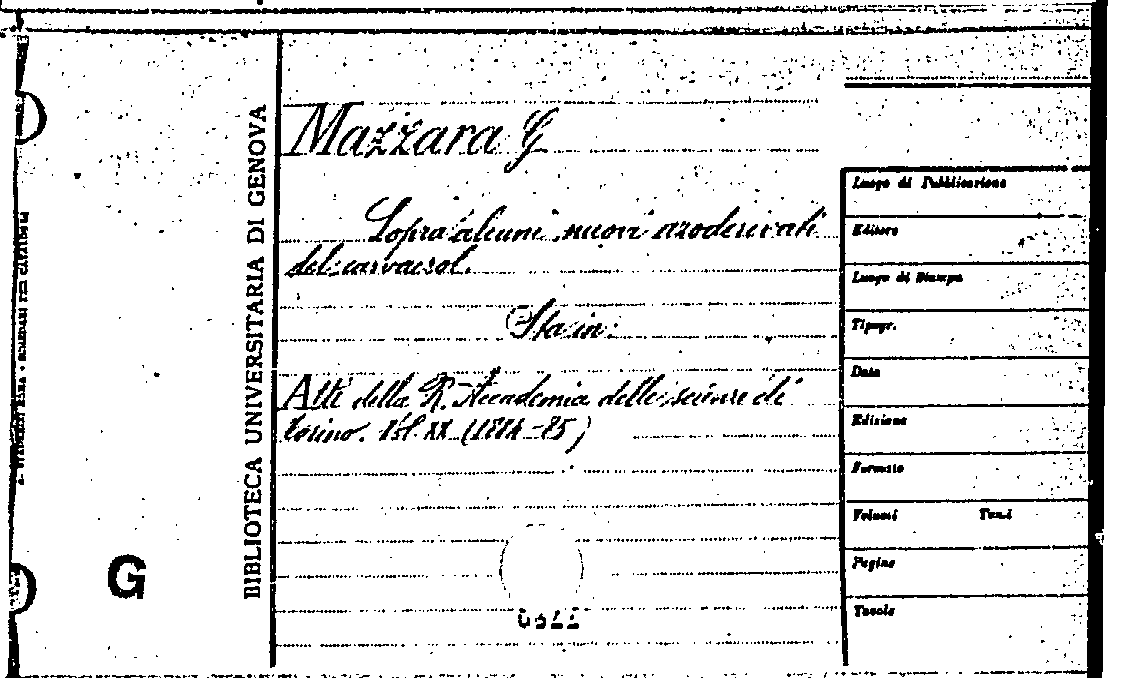 Mazzara G
Sopra alcuni nuovi azoderivati
del carvacrol.
(Sta in:
Atti della R. Accademia delle scienze di
Torino. Vol. XX (1884-85)
BIBLIOTECA UNIVERSITARIA DI GENOVA
G
Luogo di Pubblicazione
Editore
Luogo di Stampa
Tipogr.
Data
Edizione
Formato
Volumi Tomi
Pagine
Tavole